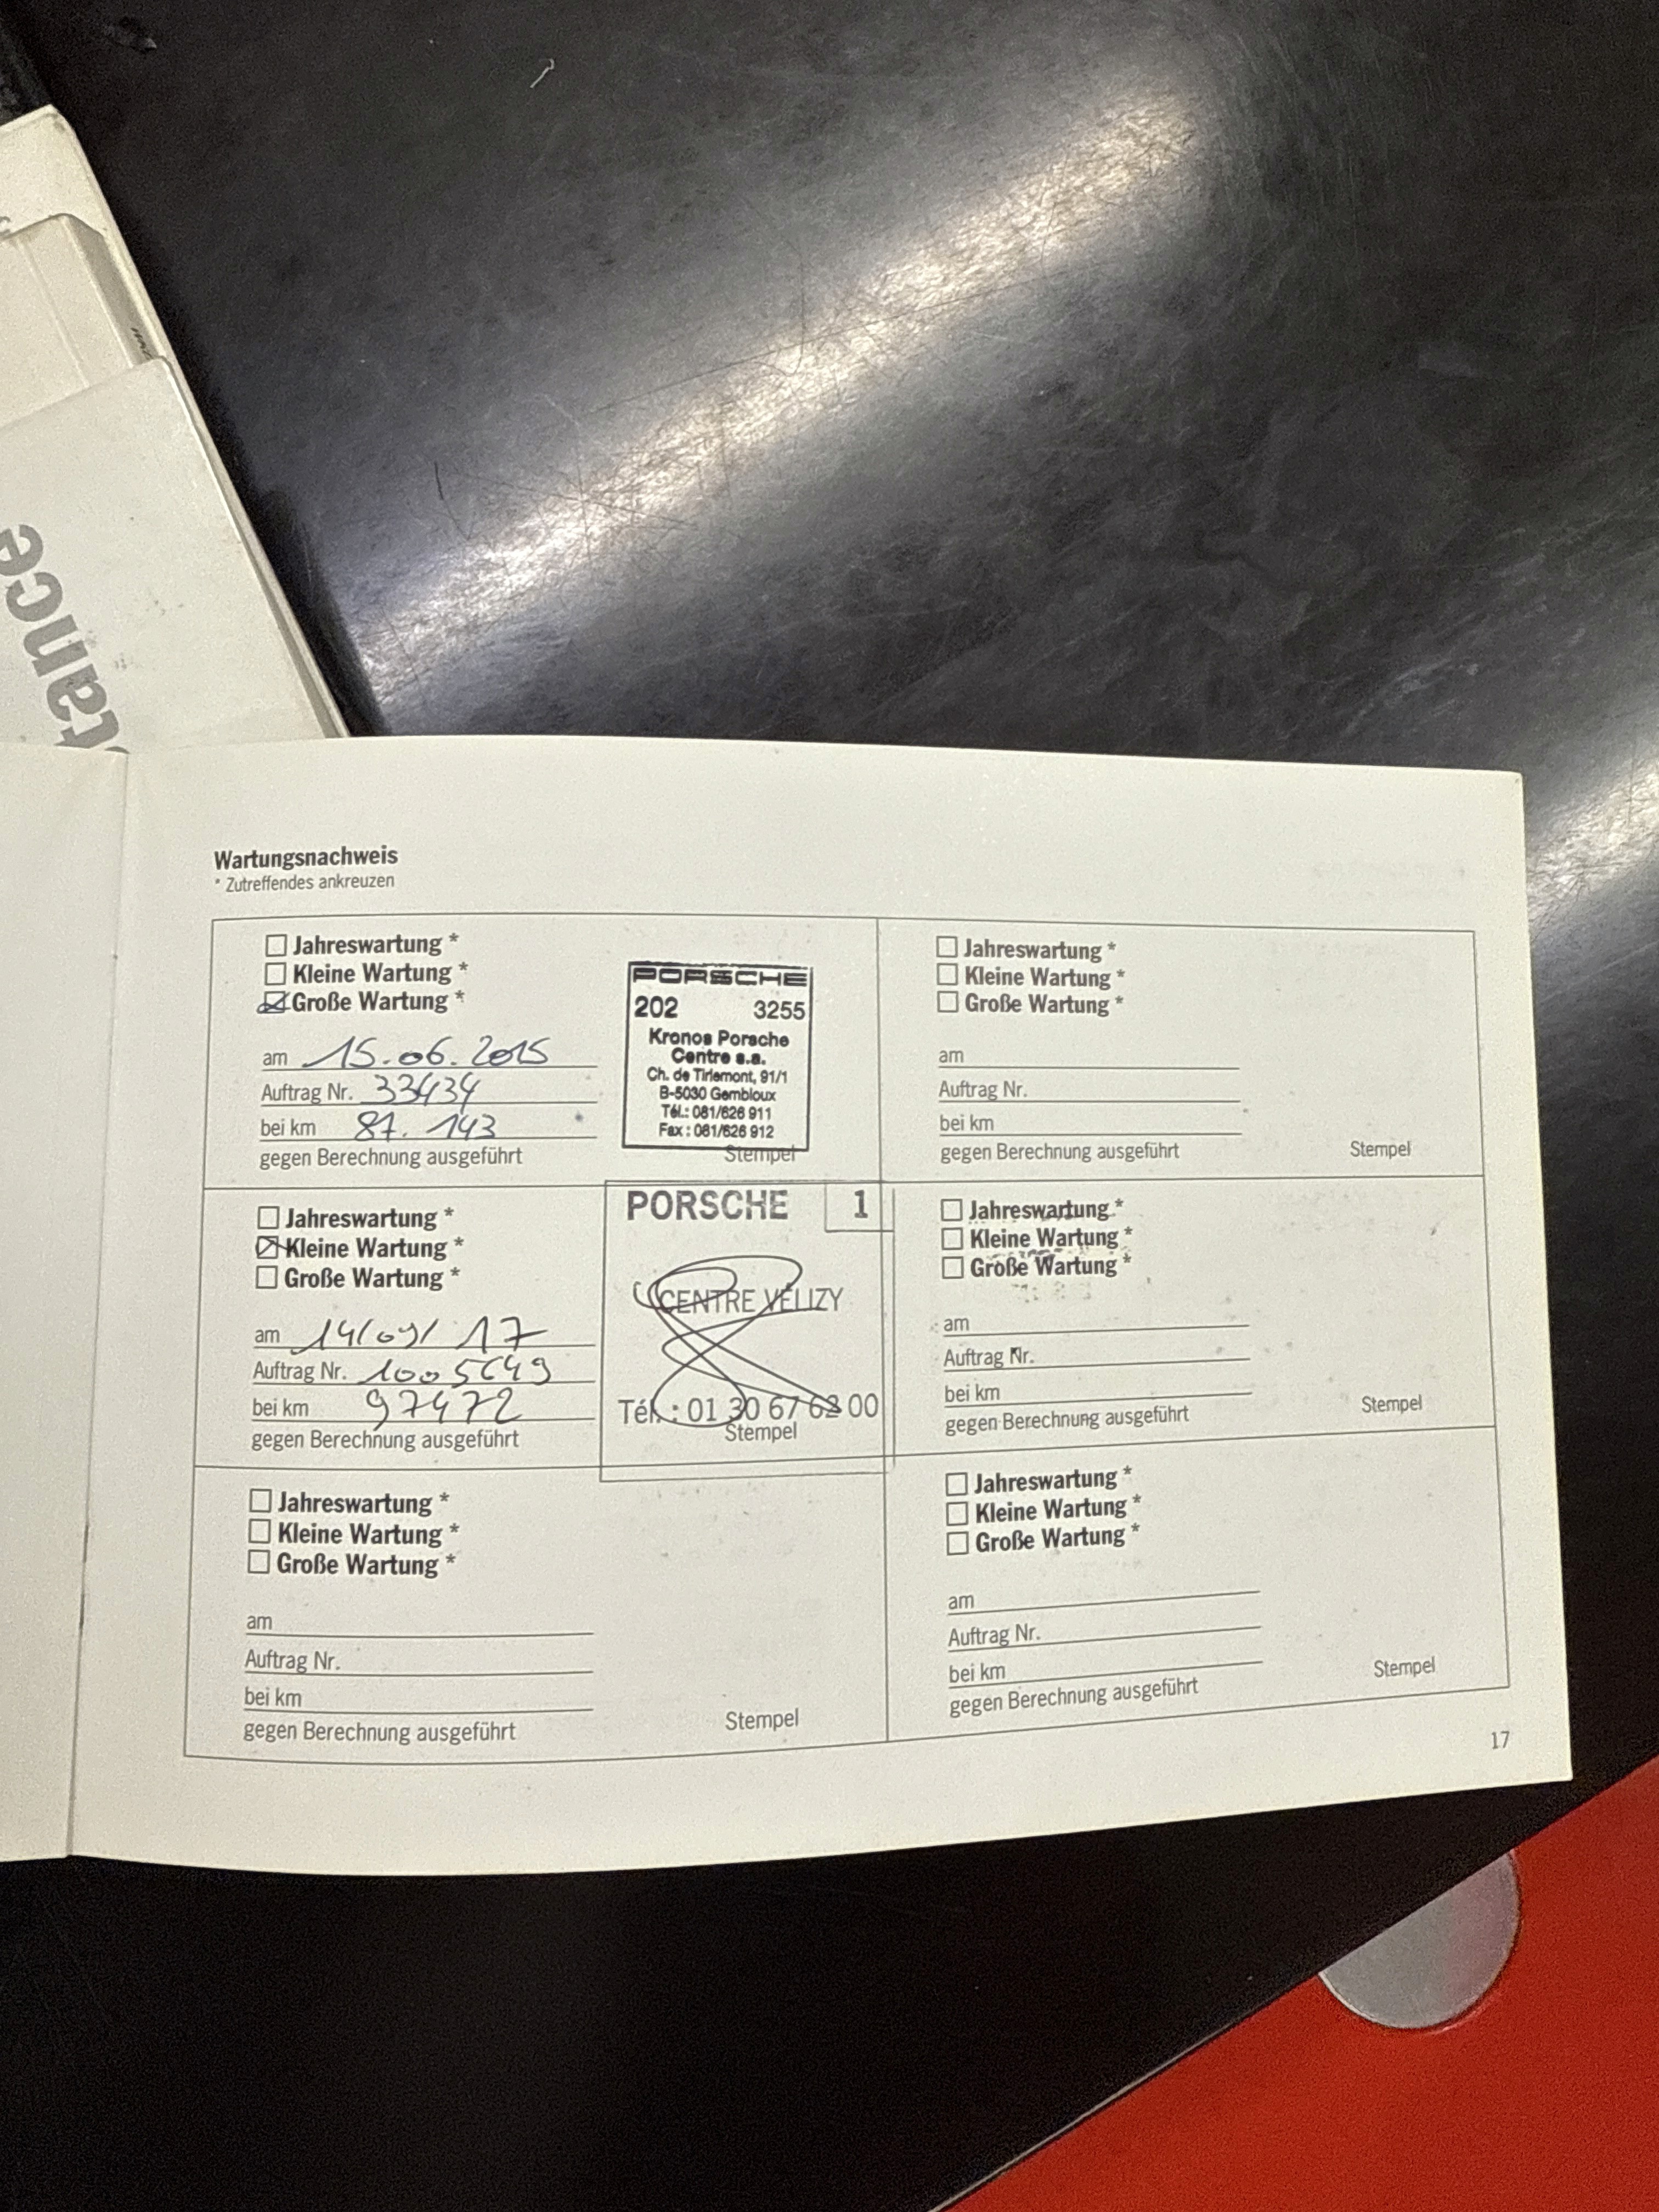 tance
Wartungsnachweis
* Zutreffendes ankreuzen
Jahreswartung *
Kleine Wartung *
Große Wartung *
am 15.06.2015
Auftrag Nr. 33434
bei km 87.143
gegen Berechnung ausgeführt
PORSCHE
202 3255
Kronos Porsche
Centre s.a.
Ch. de Tirlemont, 91/1
B-5030 Gembloux
Tél.: 081/626 911
Fax : 081/626 912
Stempel
Jahreswartung *
Kleine Wartung *
Große Wartung *
am 14/09/17
Auftrag Nr. 1005649
bei km 97472
gegen Berechnung ausgeführt
PORSCHE 1
CENTRE VÉLIZY
Tél. : 01 30 67 62 00
Stempel
Jahreswartung *
Kleine Wartung *
Große Wartung *
am
Auftrag Nr.
bei km
gegen Berechnung ausgeführt
Stempel
Jahreswartung *
Kleine Wartung *
Große Wartung *
am
Auftrag Nr.
bei km
gegen Berechnung ausgeführt
Stempel
Jahreswartung *
Kleine Wartung *
Große Wartung *
am
Auftrag Nr.
bei km
gegen Berechnung ausgeführt
Stempel
Jahreswartung *
Kleine Wartung *
Große Wartung *
am
Auftrag Nr.
bei km
gegen Berechnung ausgeführt
Stempel
17